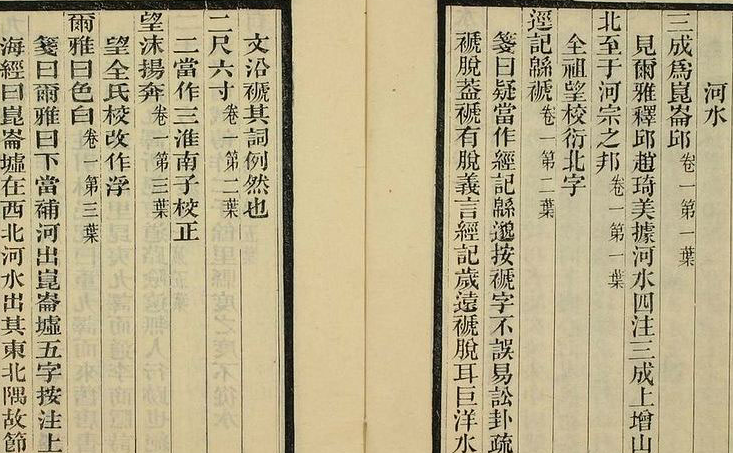 河水
三成爲崑崙邱 卷一第一葉
見爾雅釋邱趙琦美據河水四注三成上增山
北至于河宗之邦 卷一第一葉
全祖望校衍北字
逕記緜褫 卷一第二葉
箋曰疑當作經記緜邈按褫字不誤易訟卦疏
褫脫蓋褫有脫義言經記歲遠褫脫耳巨洋水
文沿褫其詞例然也
二尺六寸 卷一第二葉
二當作三淮南子校正
望沫揚奔 卷一第三葉
望全氏校改作浮
爾雅曰色白 卷一第三葉
箋曰爾雅曰下當補河出崑崙墟五字按注上
海經曰崑崙墟在西北河水出其東北隅故節